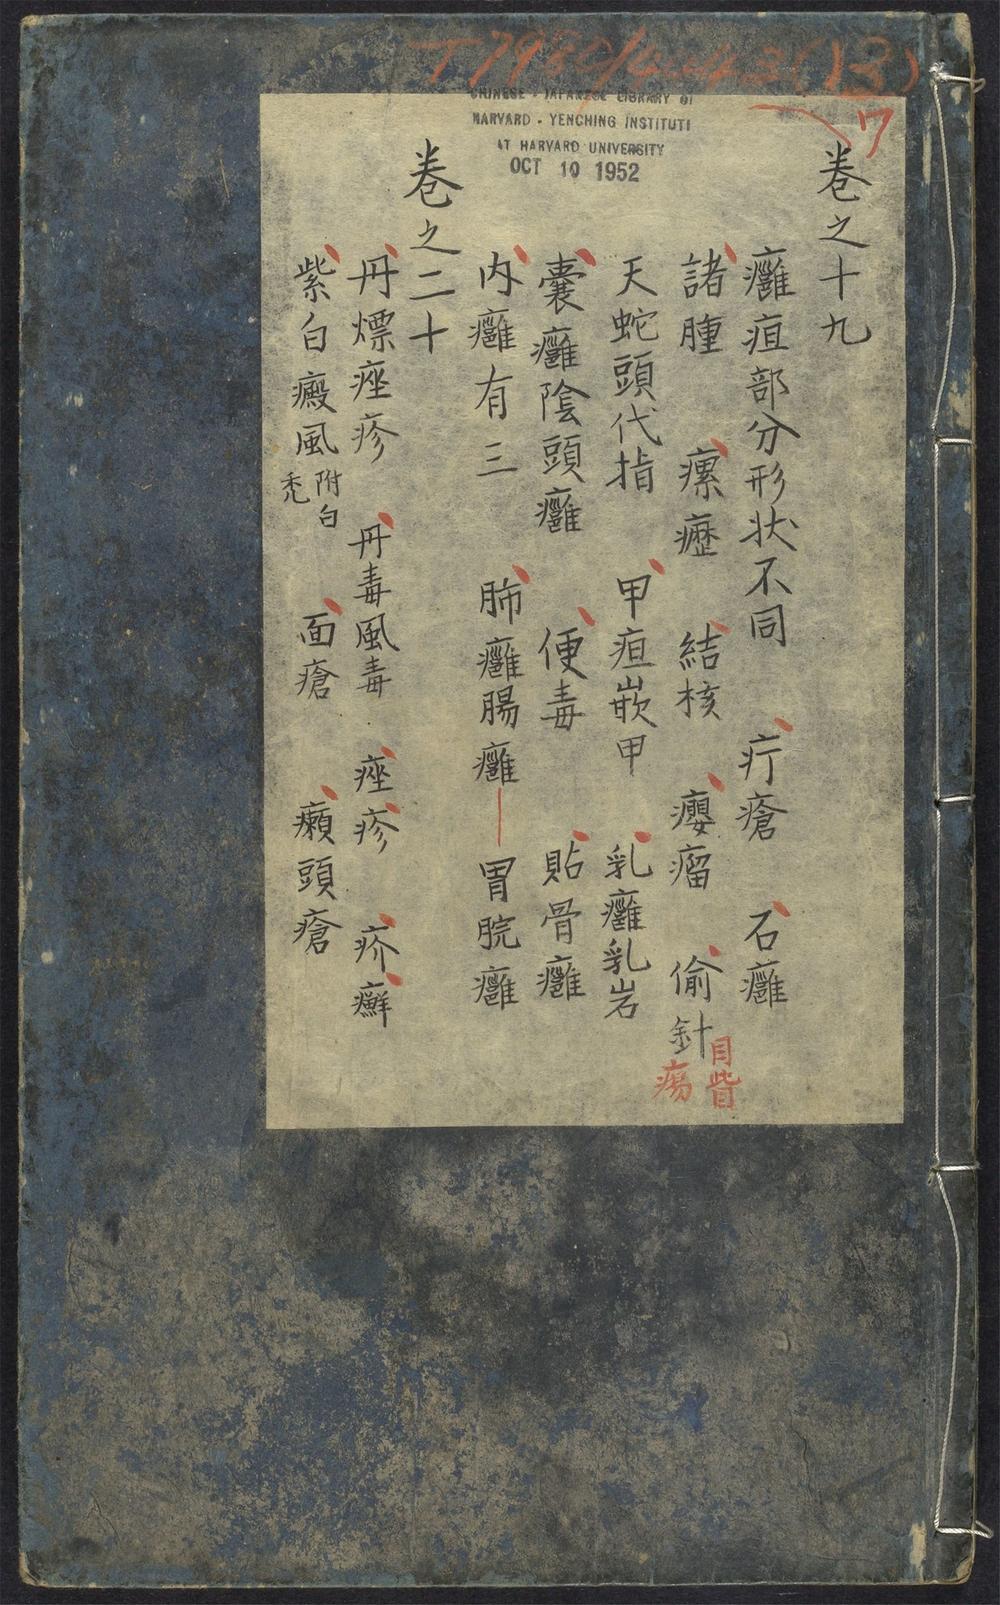 T7980/4443(13)
CHINESE - JAPANESE LIBRARY OF
HARVARD - YENCHING INSTITUTE
AT HARVARD UNIVERSITY
OCT 10 1952
7
卷之十九
癰疽部分形状不同 疔瘡 石癰
諸腫 瘰癧 結核 癭瘤 偷針
目眥
瘍
天蛇頭代指 甲疽嵌甲 乳癰乳岩
囊癰陰頭癰 便毒 貼骨癰
内癰有三 肺癰腸癰 胃脘癰
卷之二十
丹熛痤疹 丹毒風毒 痤疹 疥癬
紫白癜風 附白禿 面瘡 癩頭瘡